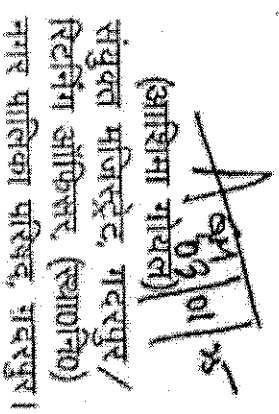 (आशिमा गोयल)
संयुक्त मजिस्ट्रेट, गदरपुर/
रिटर्निंग ऑफिसर, (स्था०नि०)
नगर पालिका परिषद, गदरपुर।